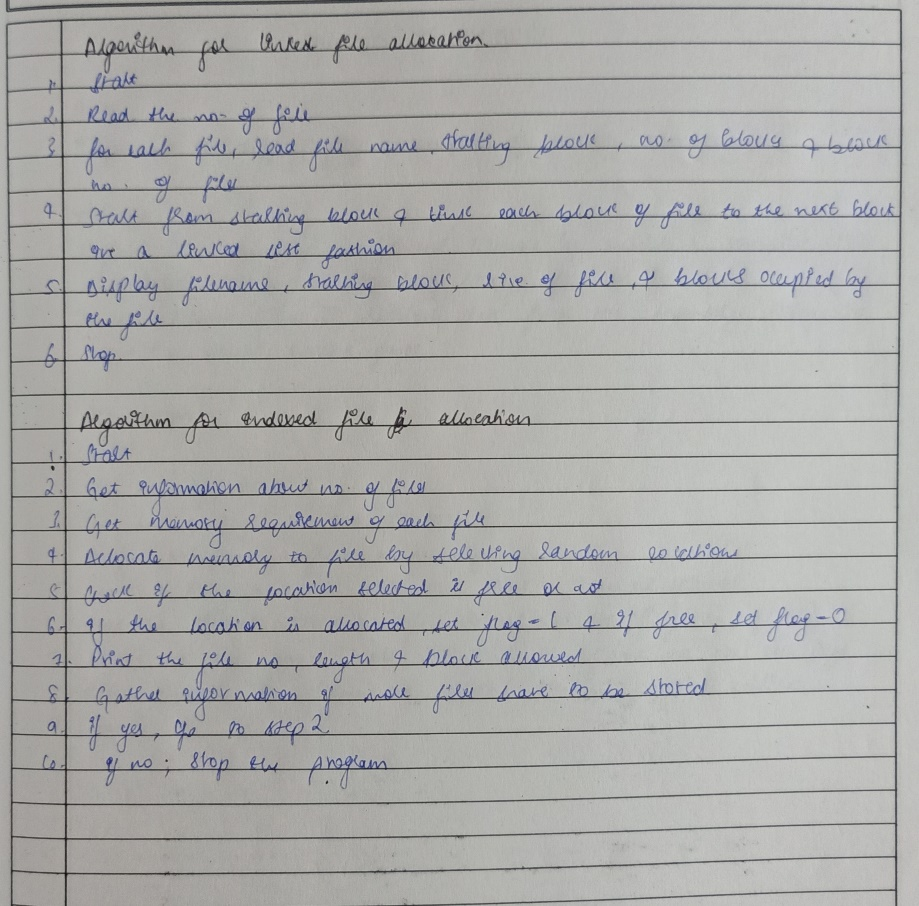 Algorithm for linked file allocation.
1. Start
2. Read the no. of file
3. for each file, read file name, starting block, no. of blocks & block
no. of files
4. Start from starting block & link each block of file to the next block
a linked list fashion
5. Display filename, starting block, size of file, & blocks occupied by
the file
6. Stop
Algorithm for indexed file allocation
1. Start
2. Get information about no. of files
3. Get memory requirement of each file
4. Allocate memory to file by selecting random locations
5. Check if the location selected is free or not
6. If the location is allocated, set flag = 1 & if free, set flag = 0
7. Print the file no, length & block allowed
8. Gather information if more files have to be stored
9. if yes, go to step 2
10. if no; stop the program